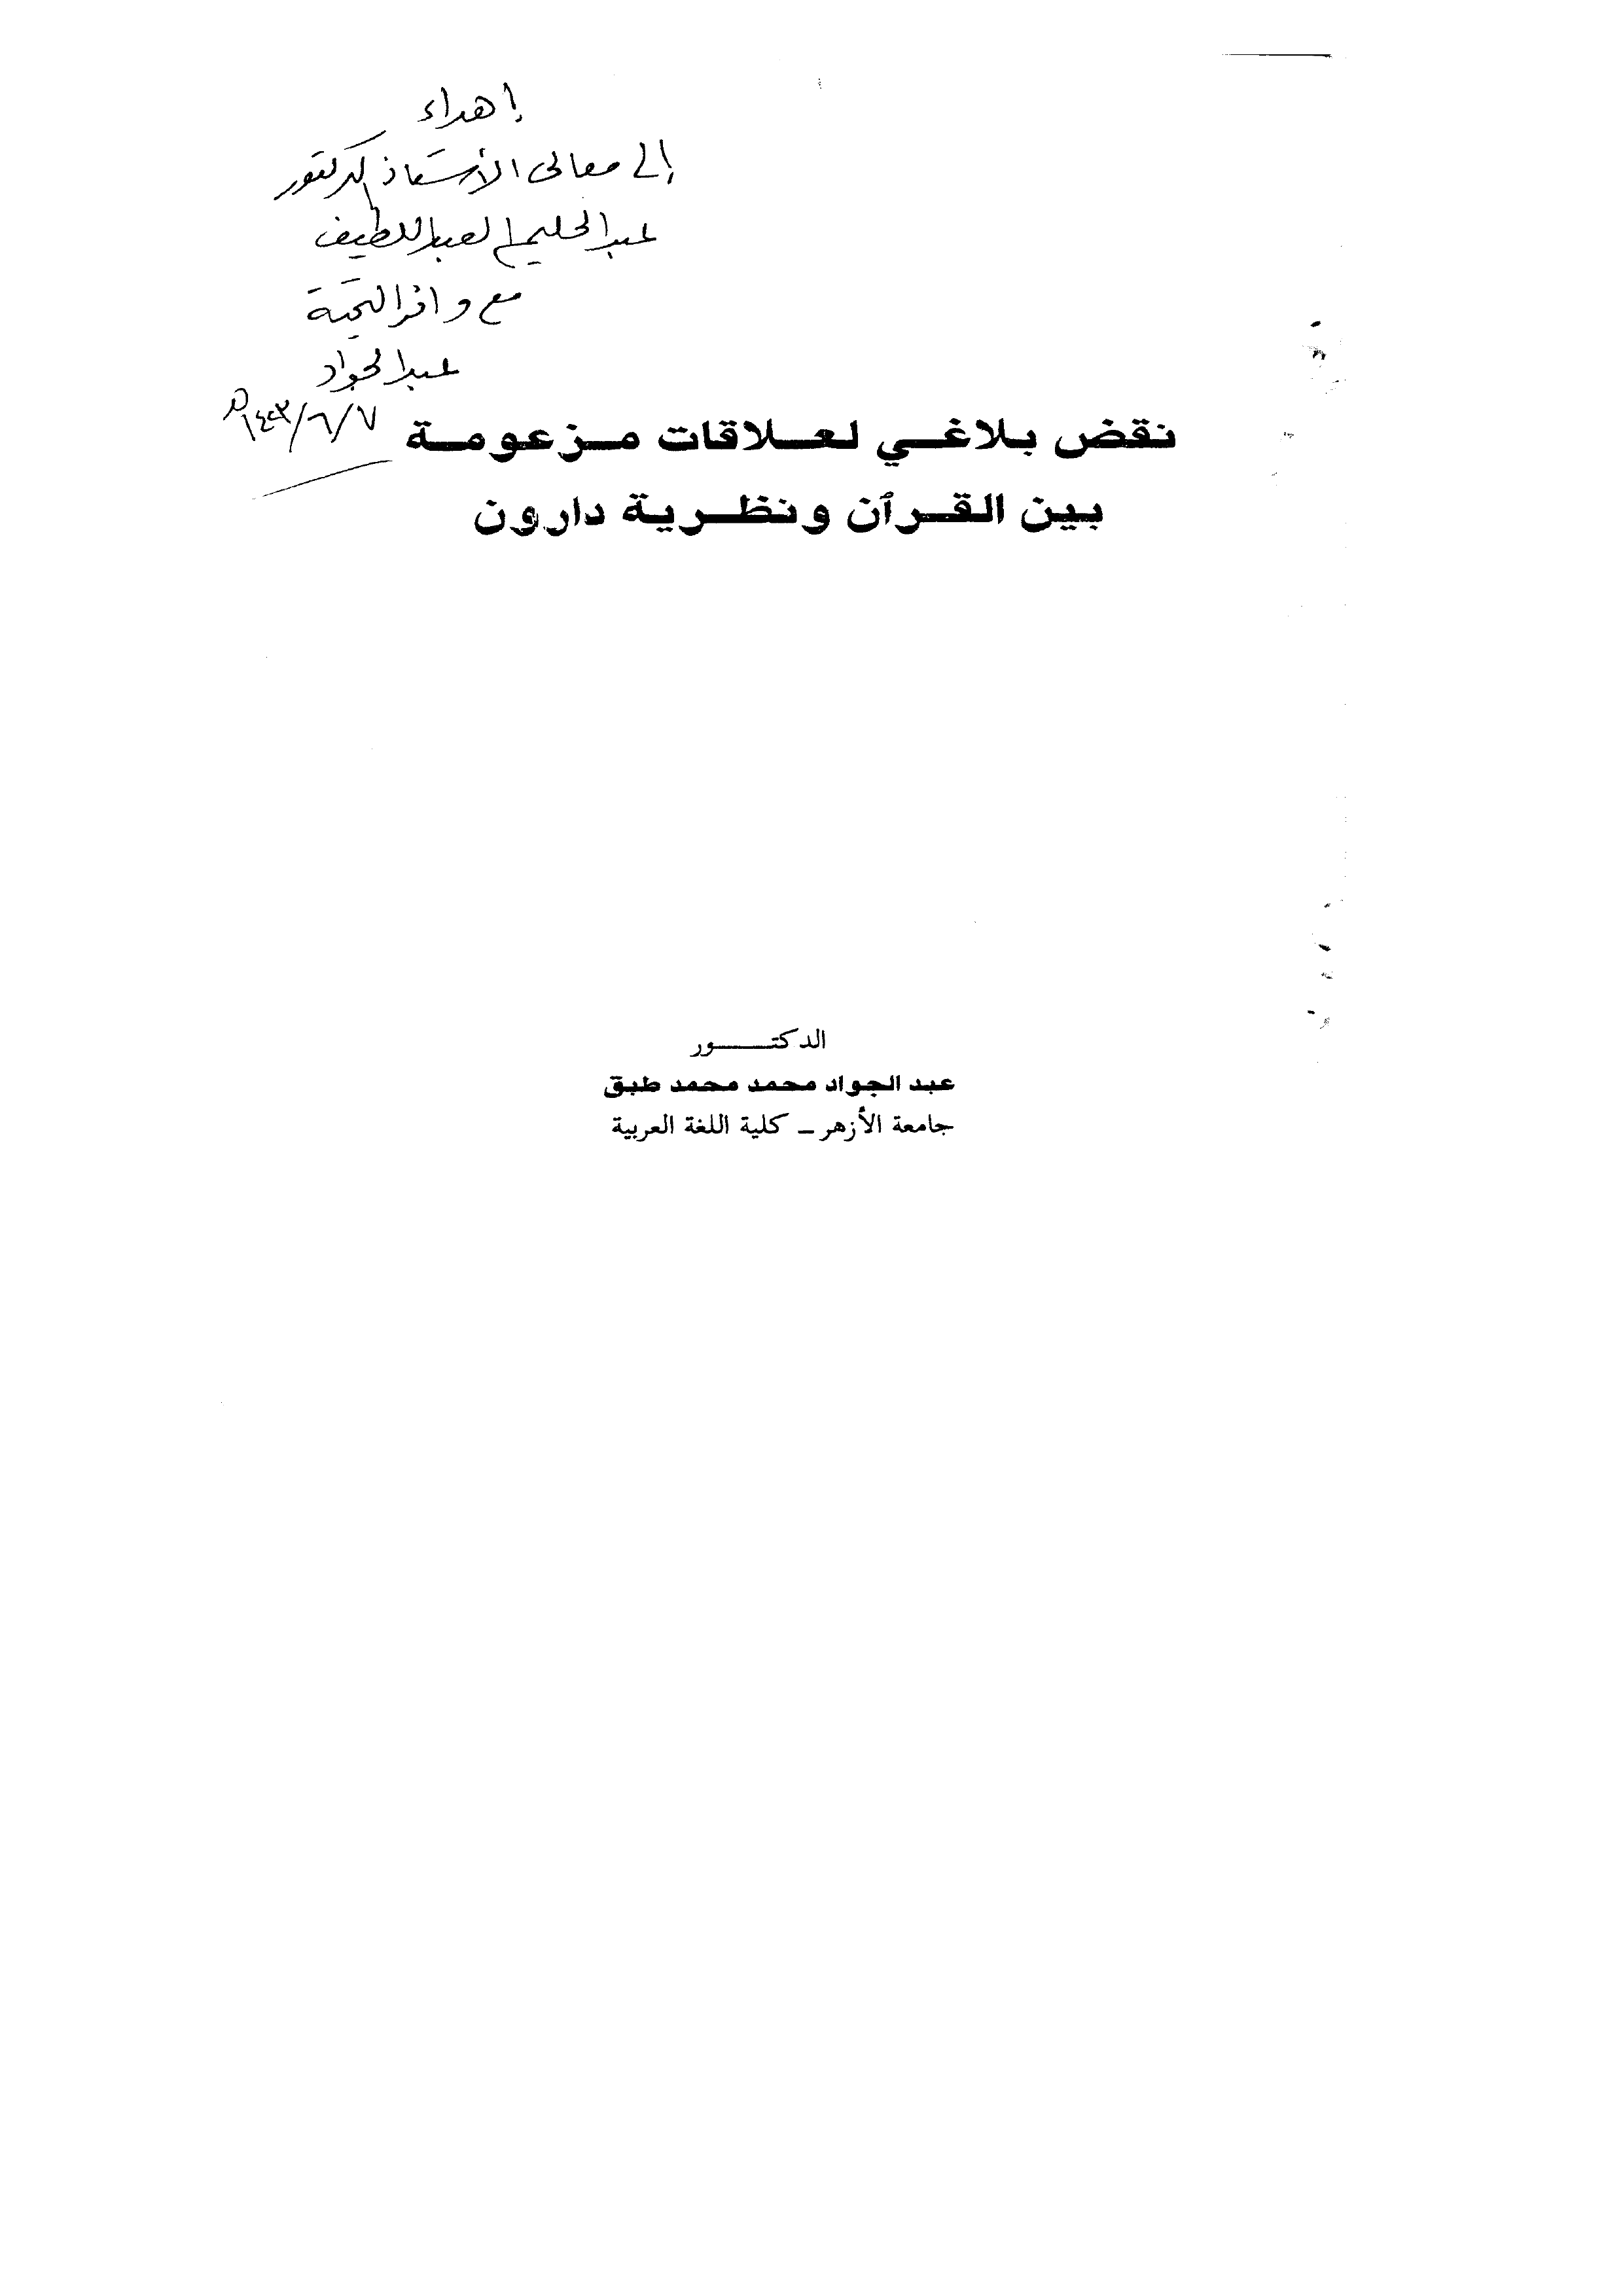 إهداء
إلى معالى الأستاذ الدكتور
عبد الحليم العبد اللطيف
مع وافر التحية
عبد الجواد
٧/٦/١٤٢٣هـ
نقض بلاغي لعلاقات مزعومة
بين القرآن ونظرية دارون
الدكتور
عبد الجواد محمد محمد طبق
جامعة الأزهر – كلية اللغة العربية